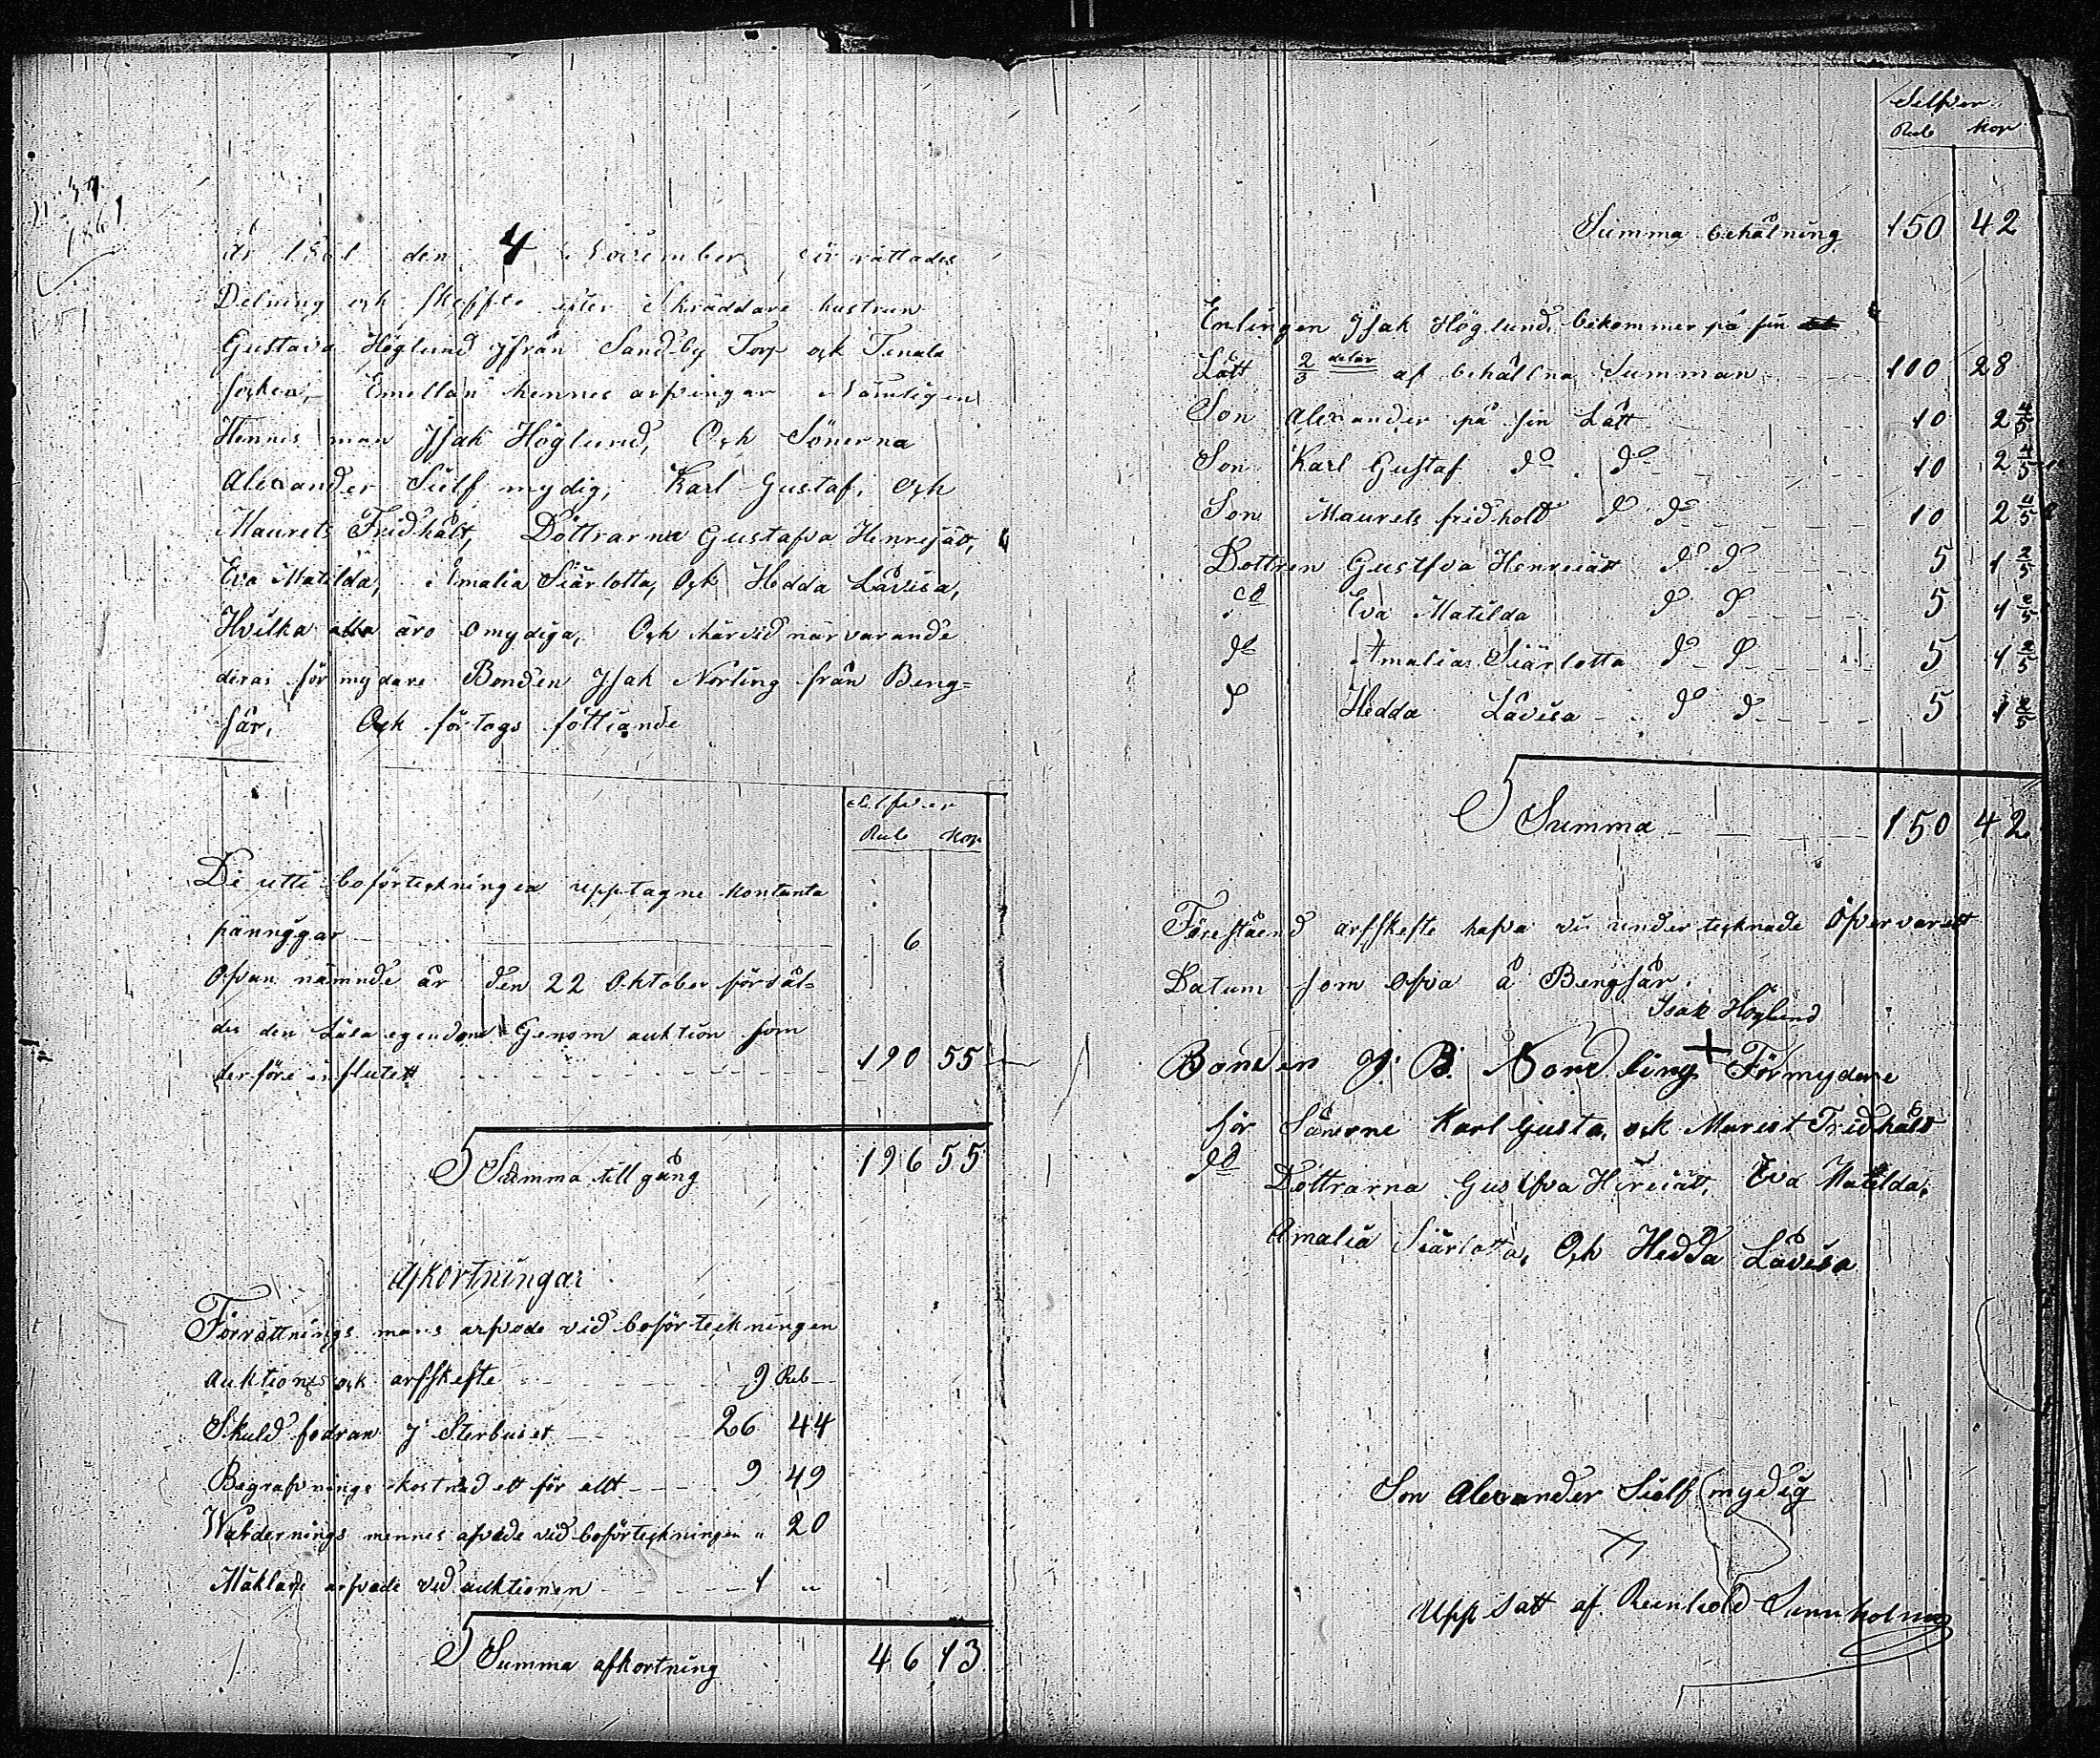 N 37.
1861
År 1861 den 4 November förrättades
Delning och skeffte efter Skräddare hustrun
Gustava Höglund ifrån Sandby Torp och Tenala
socken, Emellan hennes arfvingar Nämligen
Hennes man Isak Höglund, Och Sönerna
Alexander Sielf mydig, Karl Gustaf, Och
Maurets Fridhålt, Döttrarna Gustafva Henrejätt,
Eva Matilda, Amalia Siärlotta, Och Hedda Låvisa,
Hvilka alla äro omydiga, Och härvid närvarande
deras för mydare Bonden Isak Norling från Beng=
sår, Och förtogs föttiande
Silfver
Rub Kop
De utti boförteckningen upptagne kontanta
pännggar 6
Ofvan nämnde år den 22 Oktober försål=
des den Lösa egendom Genom auktion som
derföre influtett 190 55
Summa till gång 196 55
Afkortningar
Förrättnings mans arfvode vid boförteckningen
Auktions och arfskefte 9 Rub
Skuld fodran I Sterbuset 26 44
Begrafvnings kostnad ett för allt 9 49
Wärdernings mennes afvode vid boförteckningen " 20
Mäklare arfvode vid auktionen 1 "
Summa afkortning 46 13
Silfver
Rub Kop
Summa behålning 150 42
Enlingen Isak Höglund, bekommer på sin
Lått 2/3 delar af behållna Summan 100 28
Son Alexander på sin Lått 10 2 4/5
Son Karl Gustaf do do 10 2 4/5
Son Maurets fridholt do do 10 2 4/5
Dottren Gustfva Henreiätt do do 5 1 2/5
do Eva Matilda do do 5 1 2/5
do Amalia Siärlotta do do 5 1 2/5
do Hedda Låvisa do do 5 1 2/5
Summa 150 42
Föreståend arfskefte hafva vi under tecknade Öfvervarett
Datum som ofva å Bengsår.
Isak Höglund
Bonden J. B. Nordling + Förmydare
för Sönerne Karl Gusta, och Murest Fridhålt
do Döttrarna Gustfva Hireiätt, Eva Matilda,
Amalia Siärlotta, Och Hedda Låvisa
Son Alexander Sielf mydig
X
Uppsatt af Reinhold Sunnholm